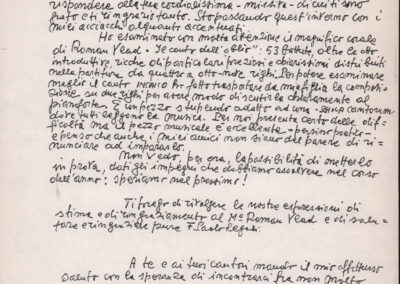 rispondere alla tua cordialissima - missiva - di cui ti sono
grato e ti ringrazio tanto. Sto passando quest'inferno con i
miei acciacchi alquanto accentuati.
Ho esaminato con molta attenzione il magnifico corale
di Roman Vlad - Je cauto dell'oblio": 53 battute, oltre le otto
introduttive, ricche di particolari frazioni e chiarissimi distribuiti
nella partitura da quattro a otto-nove righi. Per potere esaminare
meglio il canto ho fatto trasportare da mia figlia la composi-
zione su due righi per avere modo di eseguirla chiaramente al
pianoforte. È un pezzo stupendo adatto ad una
dove tutti leggono la musica. Per noi presenta certo delle dif-
ficoltà ma il pezzo musicale è eccellente - persino poetico -
e penso che anche i miei amici non siano del parere di ri-
nunciare ad impararlo.
Non vedo, per ora, la possibilità di metterlo
in prova, dati gli impegni che dobbiamo assolvere nel corso
dell'anno: speriamo nel prossimo!
Ti prego di rivolgere le nostre espressioni di
stima e di ringraziamento al M° Roman Vlad e di salu-
tare e ringraziare pure F. Paolo
A te e ai tuoi cantori manda il mio affettuoso
saluto con la speranza di incontrarci fra non molto